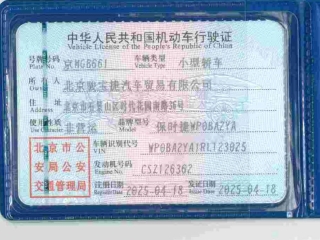 中华人民共和国机动车行驶证
Vehicle License of the People's Republic of China
号牌号码 京MG8661 车辆类型 小型轿车
Plate No. Vehicle Type
所有人 北京骏宝捷汽车贸易有限公司
Owner
住址 北京市石景山区时代花园南路36号
Address
使用性质 非营运 保时捷WP0BA2YA
Use Character
北京市公 车辆识别代号 WP0BA2YA1RL123025
VIN
安局公安 发动机号码 CSZ126362
Engine No.
交通管理局 注册日期 2025-04-18 发证日期 2025-04-18
Register Date Issue Date